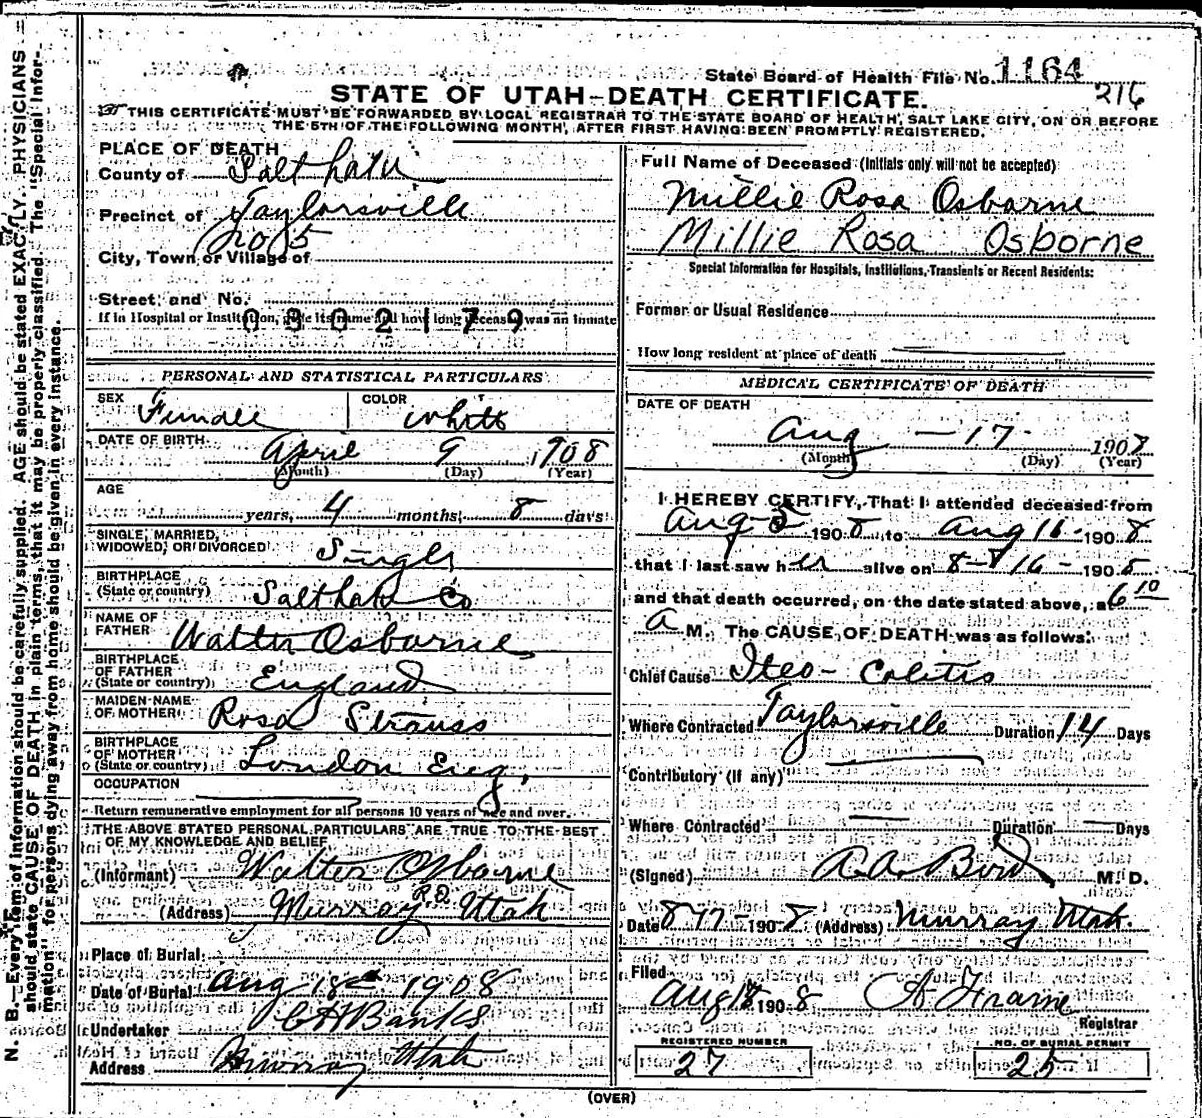 State Board of Health File No. 1164
216
STATE OF UTAH—DEATH CERTIFICATE.
THIS CERTIFICATE MUST BE FORWARDED BY LOCAL REGISTRAR TO THE STATE BOARD OF HEALTH, SALT LAKE CITY, ON OR BEFORE
THE 5TH OF THE FOLLOWING MONTH, AFTER FIRST HAVING BEEN PROMPTLY REGISTERED.
PLACE OF DEATH
County of Salt Lake
Precinct of Taylorsville
No 5
City, Town or Village of
Street and No.
If in Hospital or Institution, give its name and how long deceased was an inmate
0302179
Full Name of Deceased (Initials only will not be accepted)
Millie Rosa Osborne
Millie Rosa Osborne
Special Information for Hospitals, Institutions, Transients or Recent Residents:
Former or Usual Residence
How long resident at place of death
PERSONAL AND STATISTICAL PARTICULARS
SEX Female COLOR White
DATE OF BIRTH April 9 1908
(Month) (Day) (Year)
AGE
years, 4 months, 8 days
SINGLE, MARRIED,
WIDOWED, OR DIVORCED Single
BIRTHPLACE
(State or country) Salt Lake Co
NAME OF
FATHER Walter Osborne
BIRTHPLACE
OF FATHER
(State or country) England
MAIDEN NAME
OF MOTHER Rosa Strauss
BIRTHPLACE
OF MOTHER
(State or country) London Eng,
OCCUPATION
Return remunerative employment for all persons 10 years of age and over.
THE ABOVE STATED PERSONAL PARTICULARS ARE TRUE TO THE BEST
OF MY KNOWLEDGE AND BELIEF
(Informant) Walter Osborne
(Address) Murray R.D. Utah
Place of Burial
Date of Burial Aug 18 1908
Undertaker C A Banks
Address Murray Utah
MEDICAL CERTIFICATE OF DEATH
DATE OF DEATH
Aug — 17 - 1908
(Month) (Day) (Year)
I HEREBY CERTIFY, That I attended deceased from
Aug 5 1908 to Aug 16 - 1908
that I last saw her alive on 8-8 16 - 190
and that death occurred, on the date stated above, at 6 10
A M. The CAUSE OF DEATH was as follows:
Chief Cause Ileo-Colitis
Where Contracted Taylorsville Duration 14 Days
Contributory (If any)
Where Contracted — Duration — Days
(Signed) A.A. Bird M. D.
Date 8-17-1908 (Address) Murray Utah.
Filed
Aug 18 1908 A Frame
Registrar
REGISTERED NUMBER
27
NO. OF BURIAL PERMIT
25
(OVER)
N. B.—Every item of information should be carefully supplied. AGE should be stated EXACTLY. PHYSICIANS
should state CAUSE OF DEATH in plain terms, that it may be properly classified. The "Special Infor-
mation" for persons dying away from home should be given in every instance.